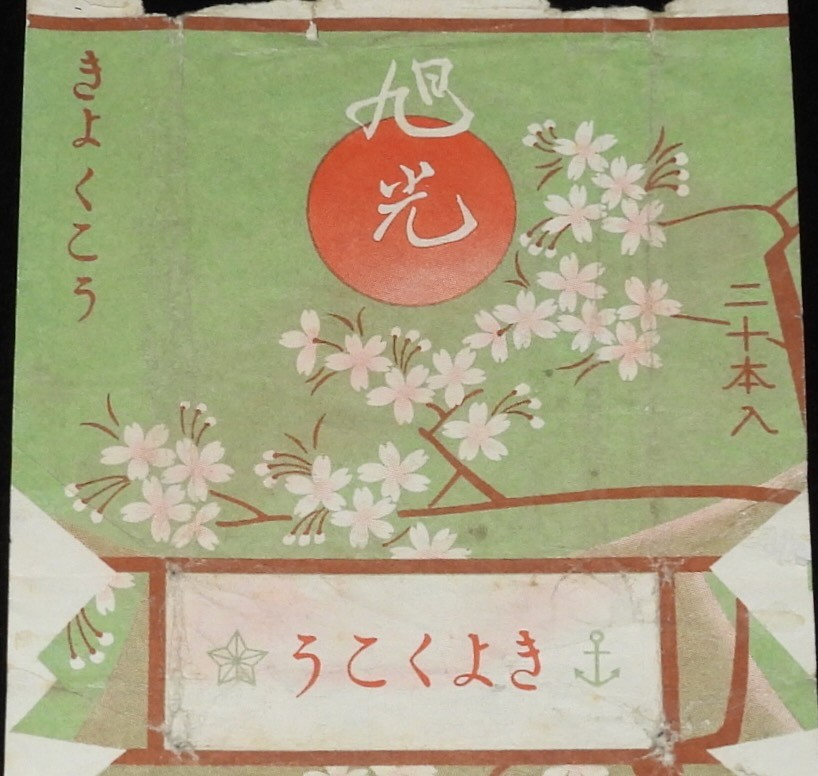 きよくこう
旭光
二十本入
うこくよき